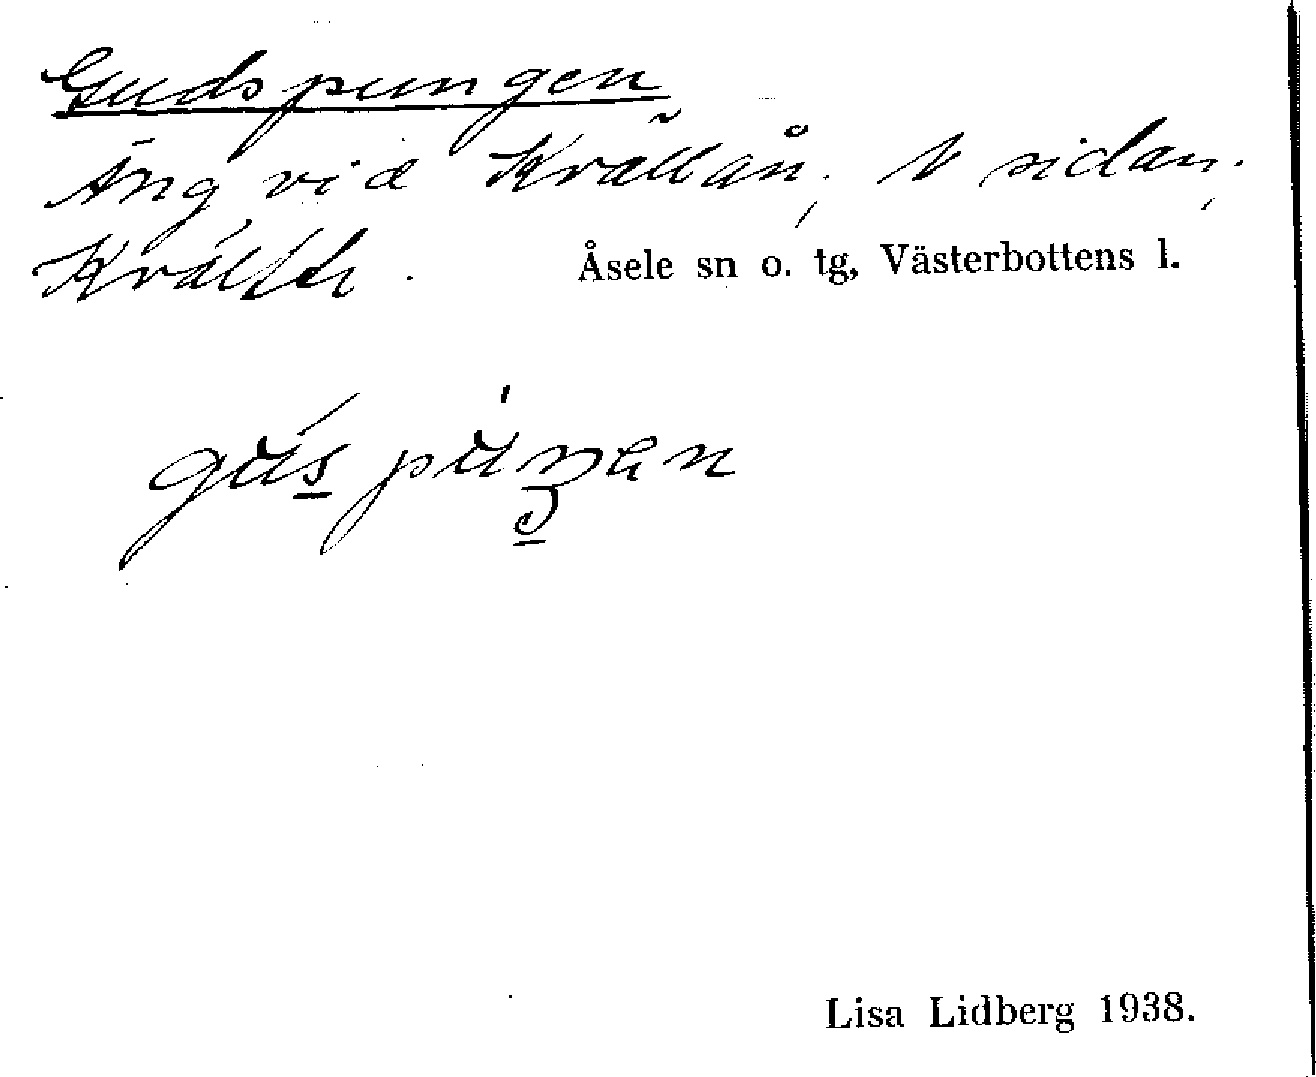 Gudspungen
Äng vid Krällån, N sidan,
Åsele sn o. tg, Västerbottens l.
Lisa Lidberg 1938.